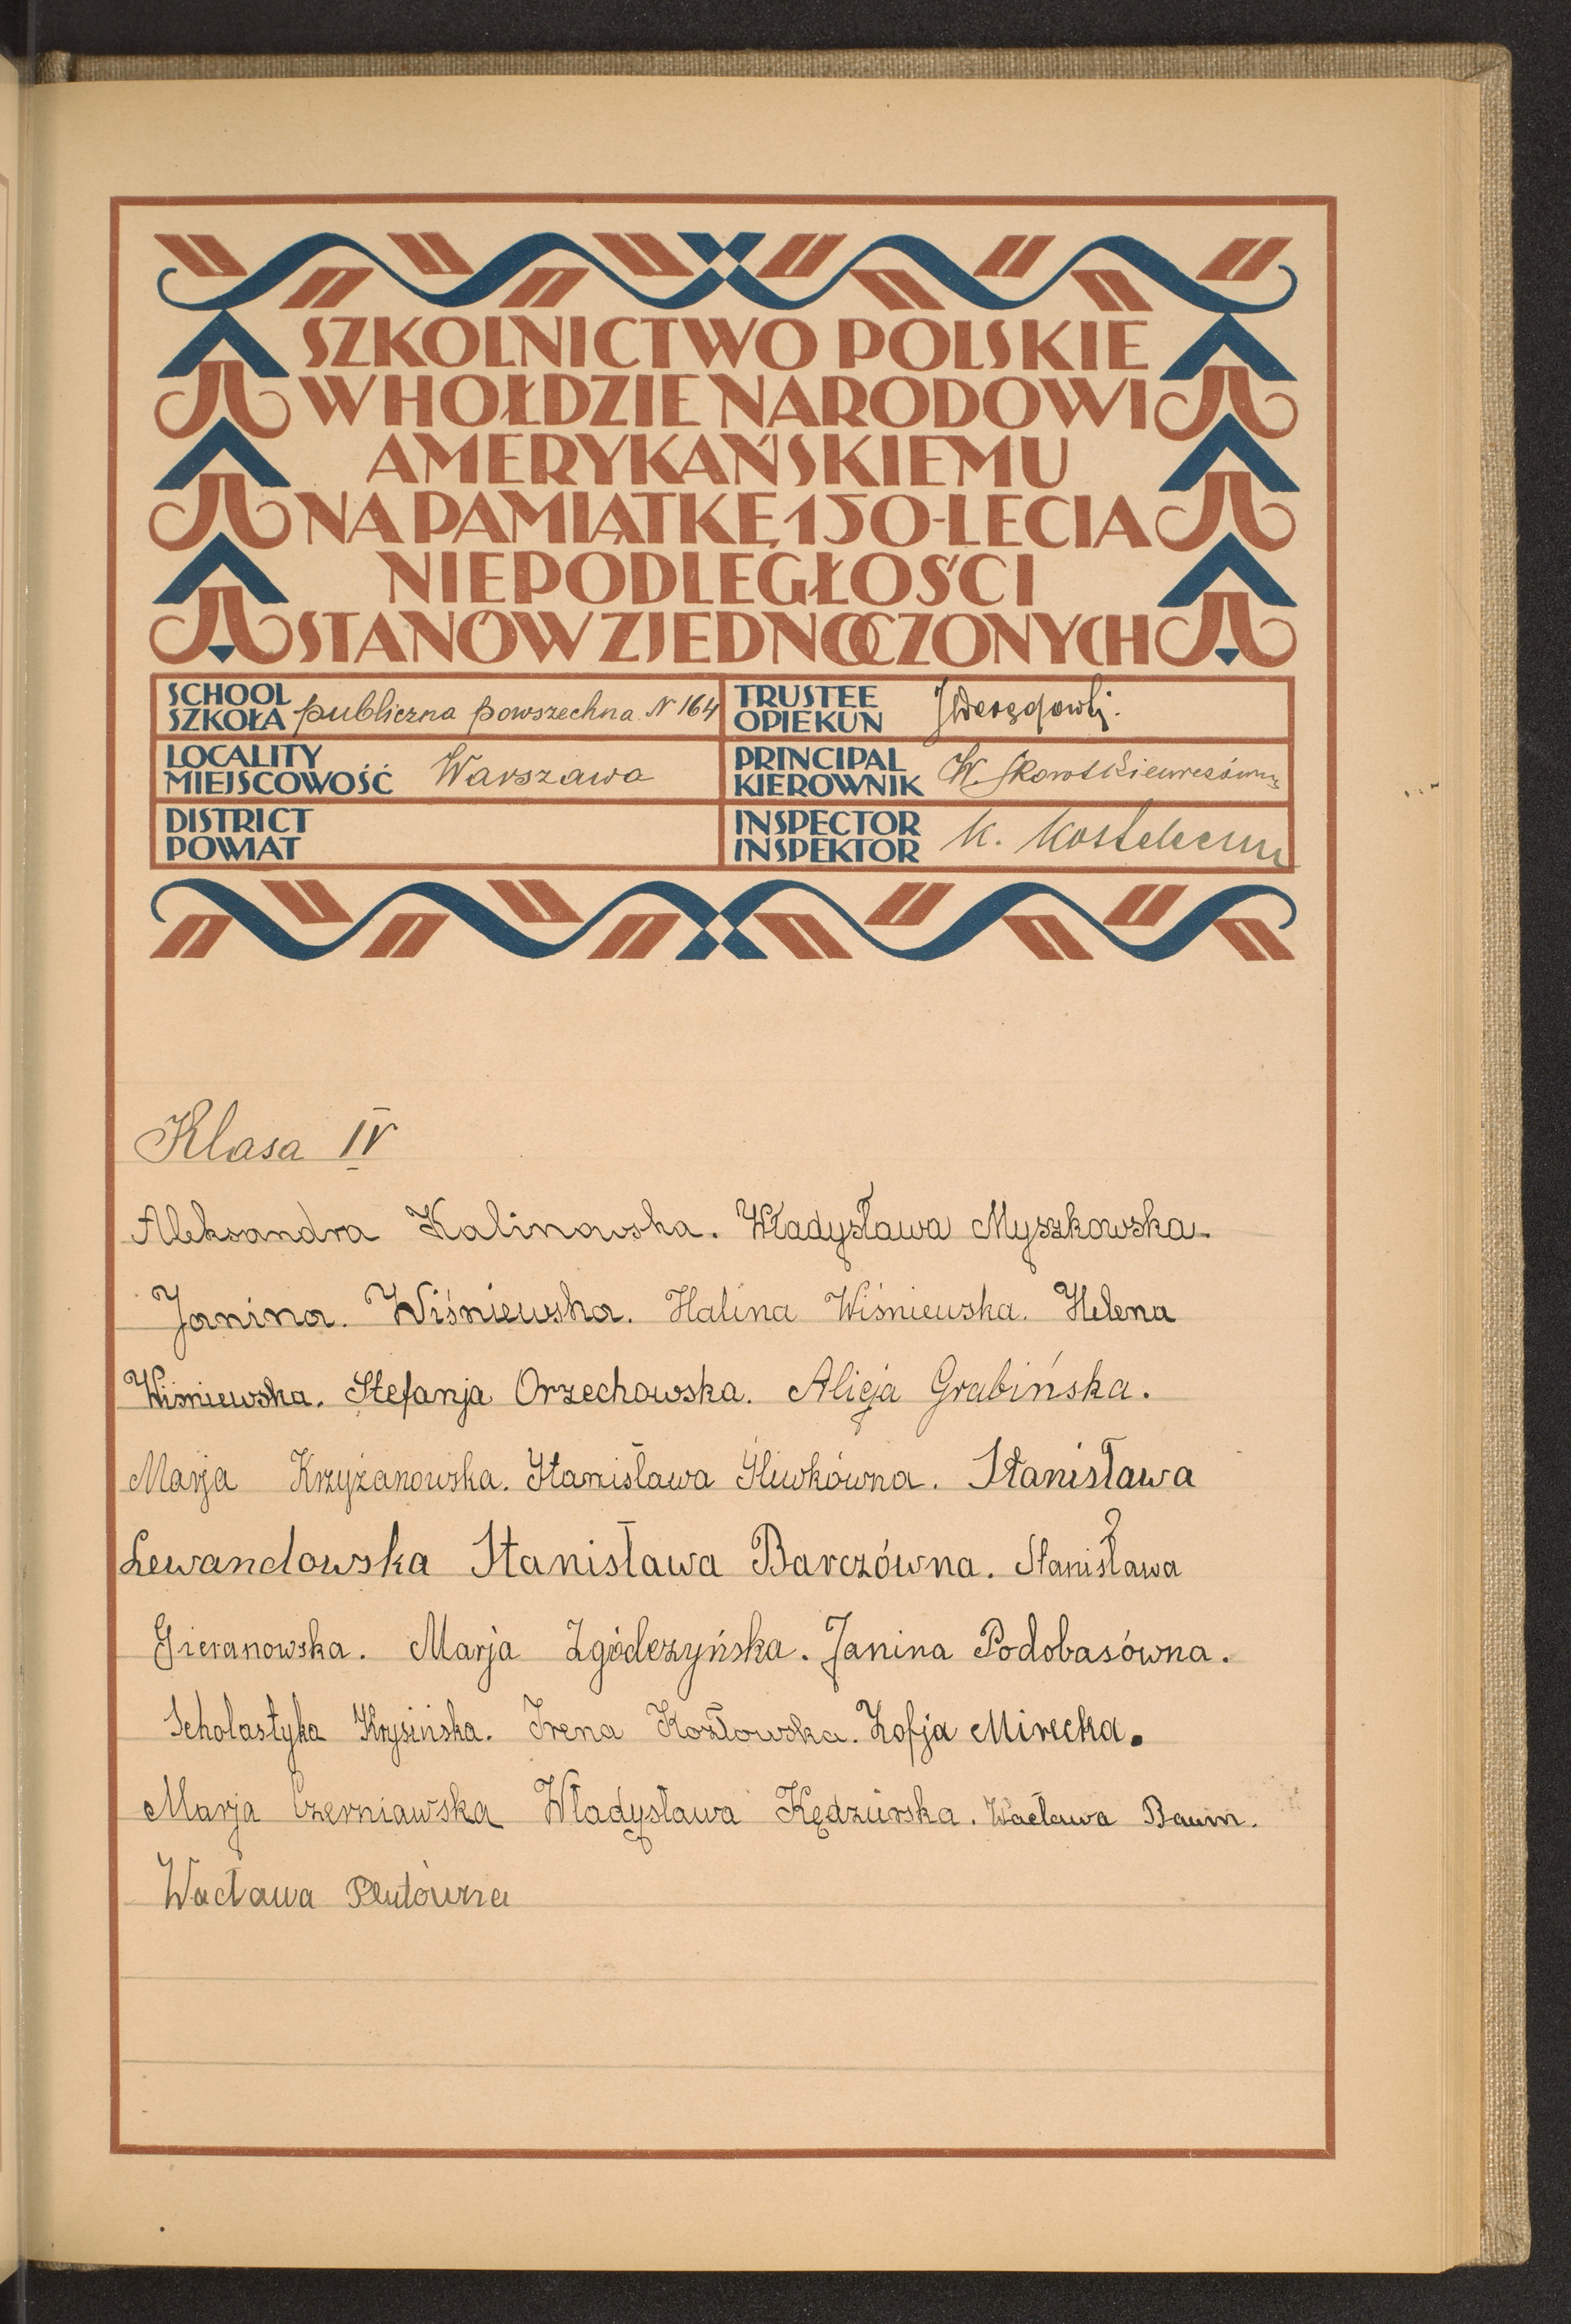 SZKOLNICTWO POLSKIE
W HOŁDZIE NARODOWI
AMERYKAŃSKIEMU
NA PAMIĄTKĘ 150-LECIA
NIEPODLEGŁOŚCI
STANÓW ZJEDNOCZONYCH
SCHOOL
SZKOŁA publiczna powszechna N 164
TRUSTEE
OPIEKUN
LOCALITY
MIEJSCOWOŚĆ Warszawa
PRINCIPAL
KIEROWNIK W.
DISTRICT
POWIAT
INSPECTOR
INSPEKTOR K.
Klasa IV
Aleksandra Kalinowska. Władysława Myszkowska.
Janina. Wiśniewska. Halina Wiśniewska. Helena
Wiśniewska. Stefanja Orzechowska. Alicja Grabińska.
Marja Krzyżanowska. Stanisława Śliwkówna. Stanisława
Lewandowska Stanisława Barczówna. Stanisława
Gieranowska. Marja Zgódczyńska. Janina Podobasówna.
Scholastyka Krysińska. Irena Kozłowska. Zofja Mirecka.
Marja Czerniawska Władysława Kędzierska. Wacława Baum.
Wacława Plutówna